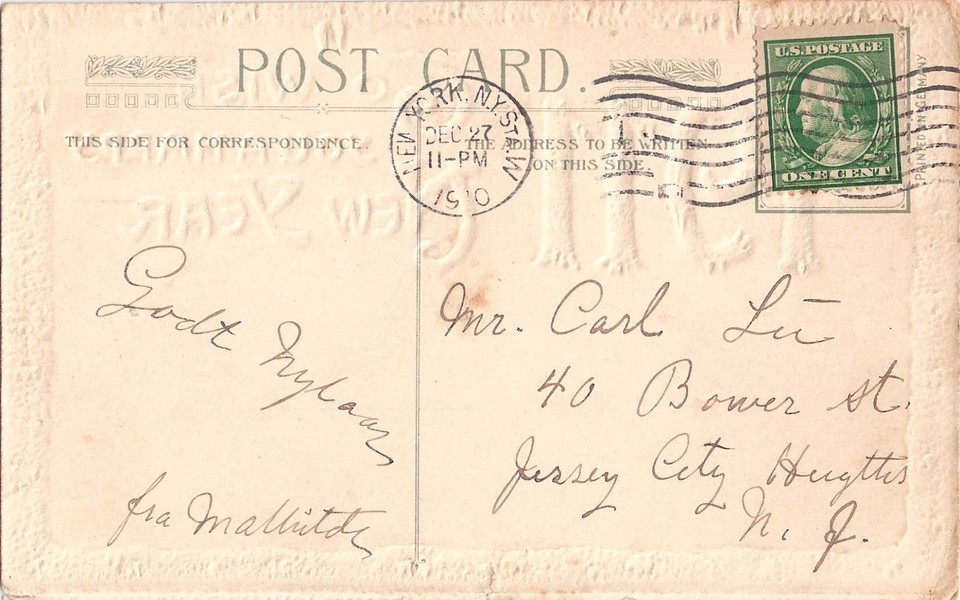 POST CARD.
THIS SIDE FOR CORRESPONDENCE.
THE ADDRESS TO BE WRITTEN
ON THIS SIDE
NEW YORK, N.Y. STA. W
DEC 27
11-PM
1910
U.S. POSTAGE
ONE CENT
PRINTED IN GERMANY
Godt Nytaar
fra Mathilde
Mr. Carl
40 Bower St.
Jersey City Heights
N. J.
NEW YEAR